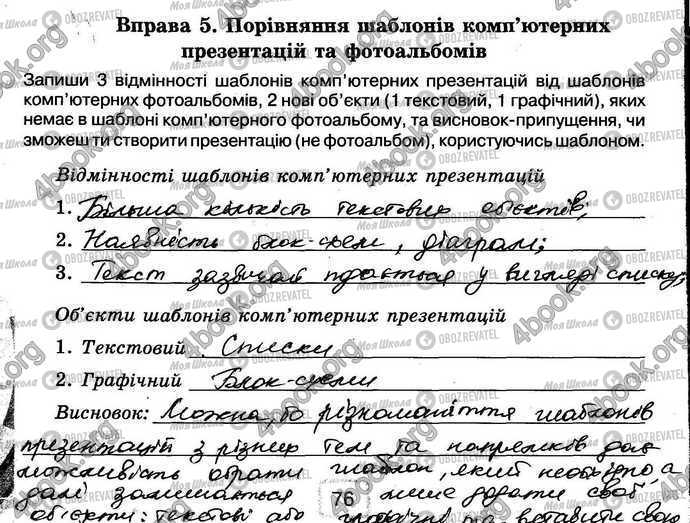 Вправа 5. Порівняння шаблонів комп’ютерних
презентацій та фотоальбомів
Запиши 3 відмінності шаблонів комп’ютерних презентацій від шаблонів
комп’ютерних фотоальбомів, 2 нові об’єкти (1 текстовий, 1 графічний), яких
немає в шаблоні комп’ютерного фотоальбому, та висновок-припущення, чи
зможеш ти створити презентацію (не фотоальбом), користуючись шаблоном.
Відмінності шаблонів комп’ютерних презентацій
1. Більша кількість текстових об’єктів;
2. Наявність блок-схем, діаграм;
3. Текст зазвичай подається у вигляді списку;
Об’єкти шаблонів комп’ютерних презентацій
1. Текстовий Списки
2. Графічний Блок-схеми
Висновок: Можна, бо різноманіття шаблонів
презентацій з різних тем та напрямків дає
можливість обрати шаблон, який необхідно, а
далі залишається 76 лише додати свої
об’єкти: текстові або вставити свою